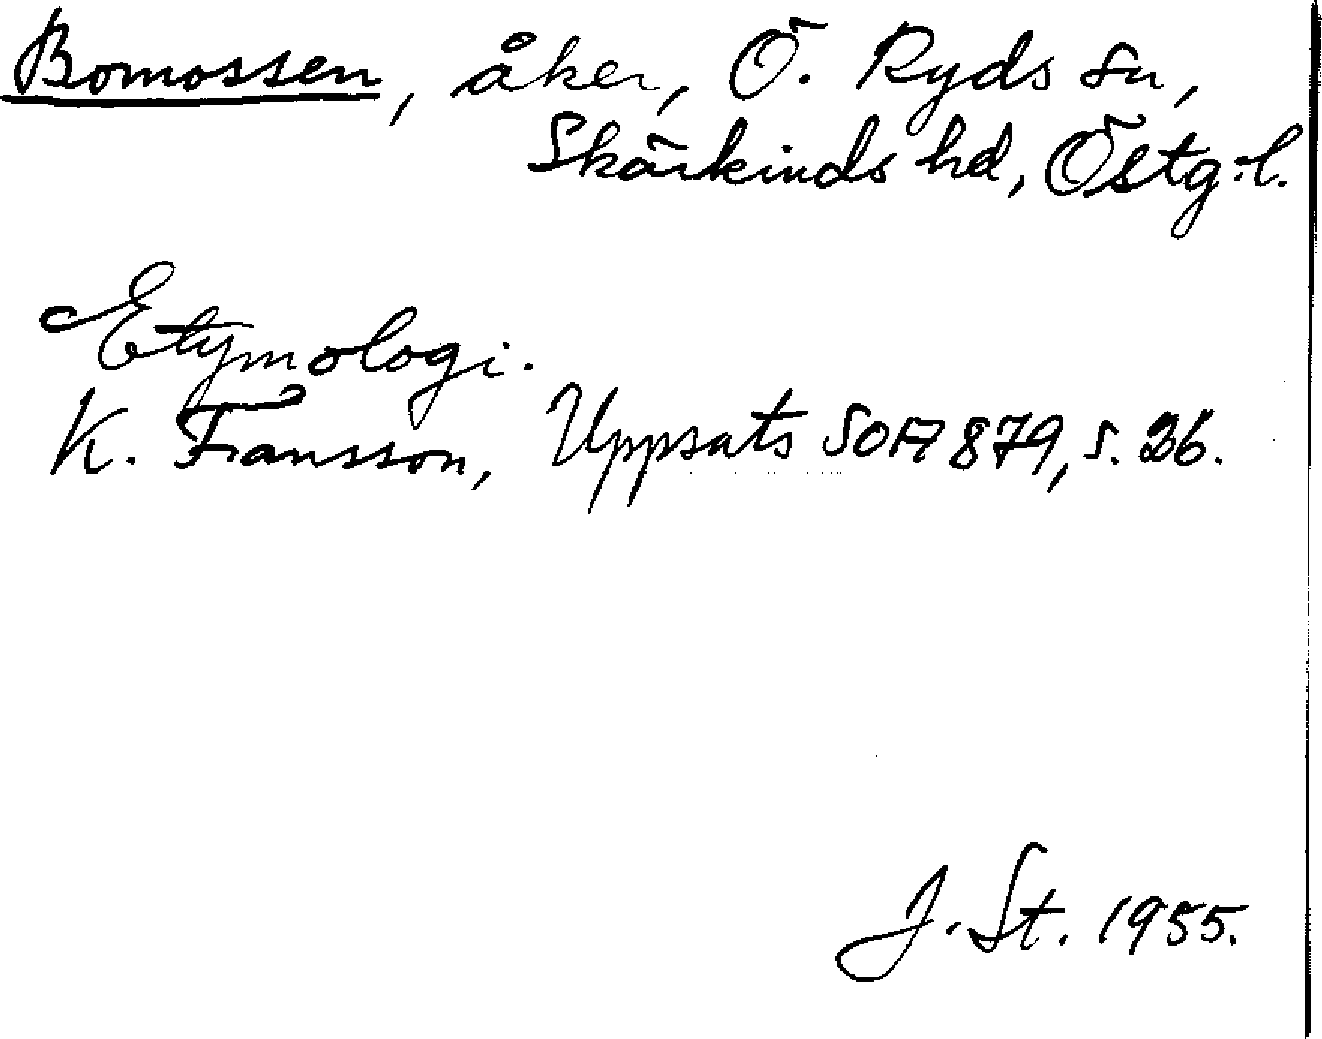 Bomossen, åker, Ö. Ryds sn,
Skärkinds hd, Östg:l.
Etymologi.
K. Fransson, Uppsats SOA 879, s. 26.
J. St. 1955.